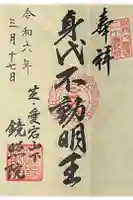 奉拝
身代不動明王
令和六年
三月十七日
芝・愛宕山下
鏡照院